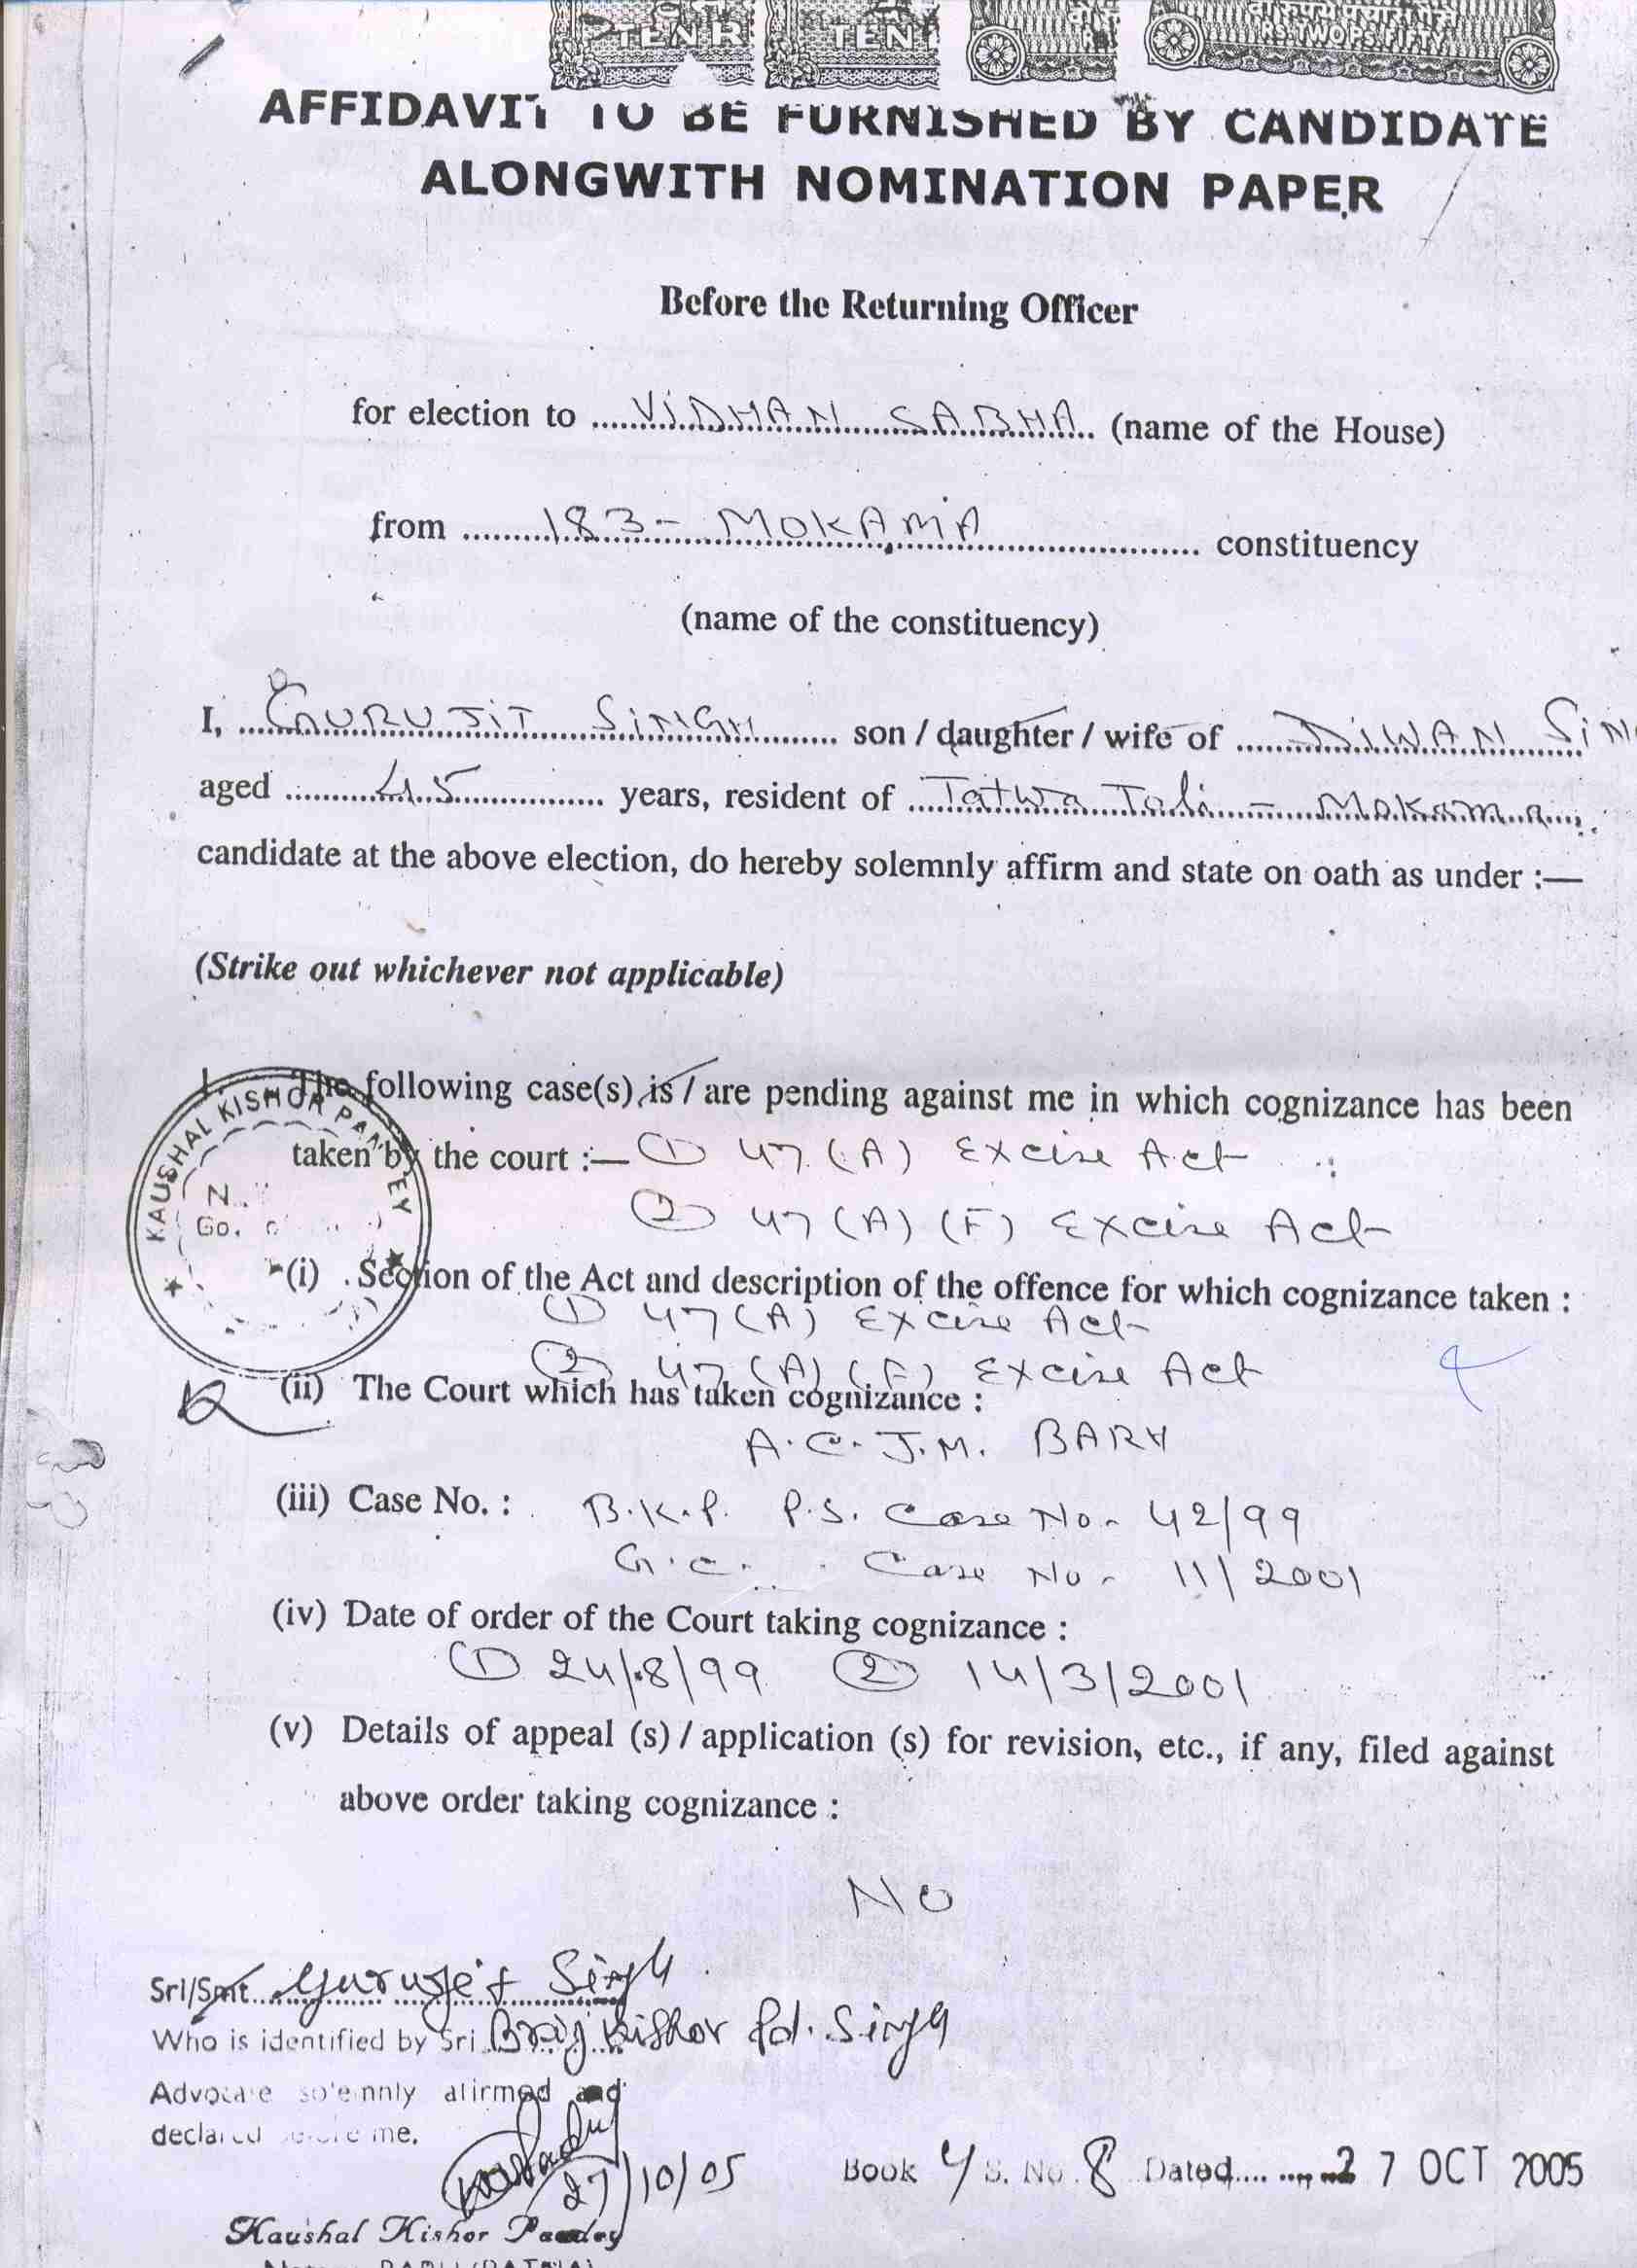 TEN R TEN RS. TWO PS. FIFTY
AFFIDAVIT TO BE FURNISHED BY CANDIDATE
ALONGWITH NOMINATION PAPER
Before the Returning Officer
for election to ......VIDHAN SABHA...... (name of the House)
from ......183- MOKAMA...... constituency
(name of the constituency)
I, ......GURUJIT SINGH...... son / daughter / wife of ......DIWAN SIN
aged ......45...... years, resident of ......Tatwa Toli - Mokama......
candidate at the above election, do hereby solemnly affirm and state on oath as under :—
(Strike out whichever not applicable)
I. The following case(s) is / are pending against me in which cognizance has been
taken by the court :— (1) 47 (A) Excise Act
(2) 47 (A) (F) Excise Act
KAUSHAL KISHOR PANDEY
(i) Section of the Act and description of the offence for which cognizance taken :
(1) 47 (A) Excise Act
(2) 47 (A) (F) Excise Act
(ii) The Court which has taken cognizance :
A.C.J.M. BARH
(iii) Case No. : B.K.P. P.S. Case No- 42/99
G.C. Case No- 11/2001
(iv) Date of order of the Court taking cognizance :
(1) 24/8/99 (2) 14/3/2001
(v) Details of appeal (s) / application (s) for revision, etc., if any, filed against
above order taking cognizance :
No
Sri/Smt. Gurujeet Singh
Who is identified by Sri Braj Kishor Pd. Singh
Advocate solemnly afirmed and
declared before me.
27/10/05
Book 4 S. No. 8 Dated...... 27 OCT 2005
Kaushal Kishor Pandey